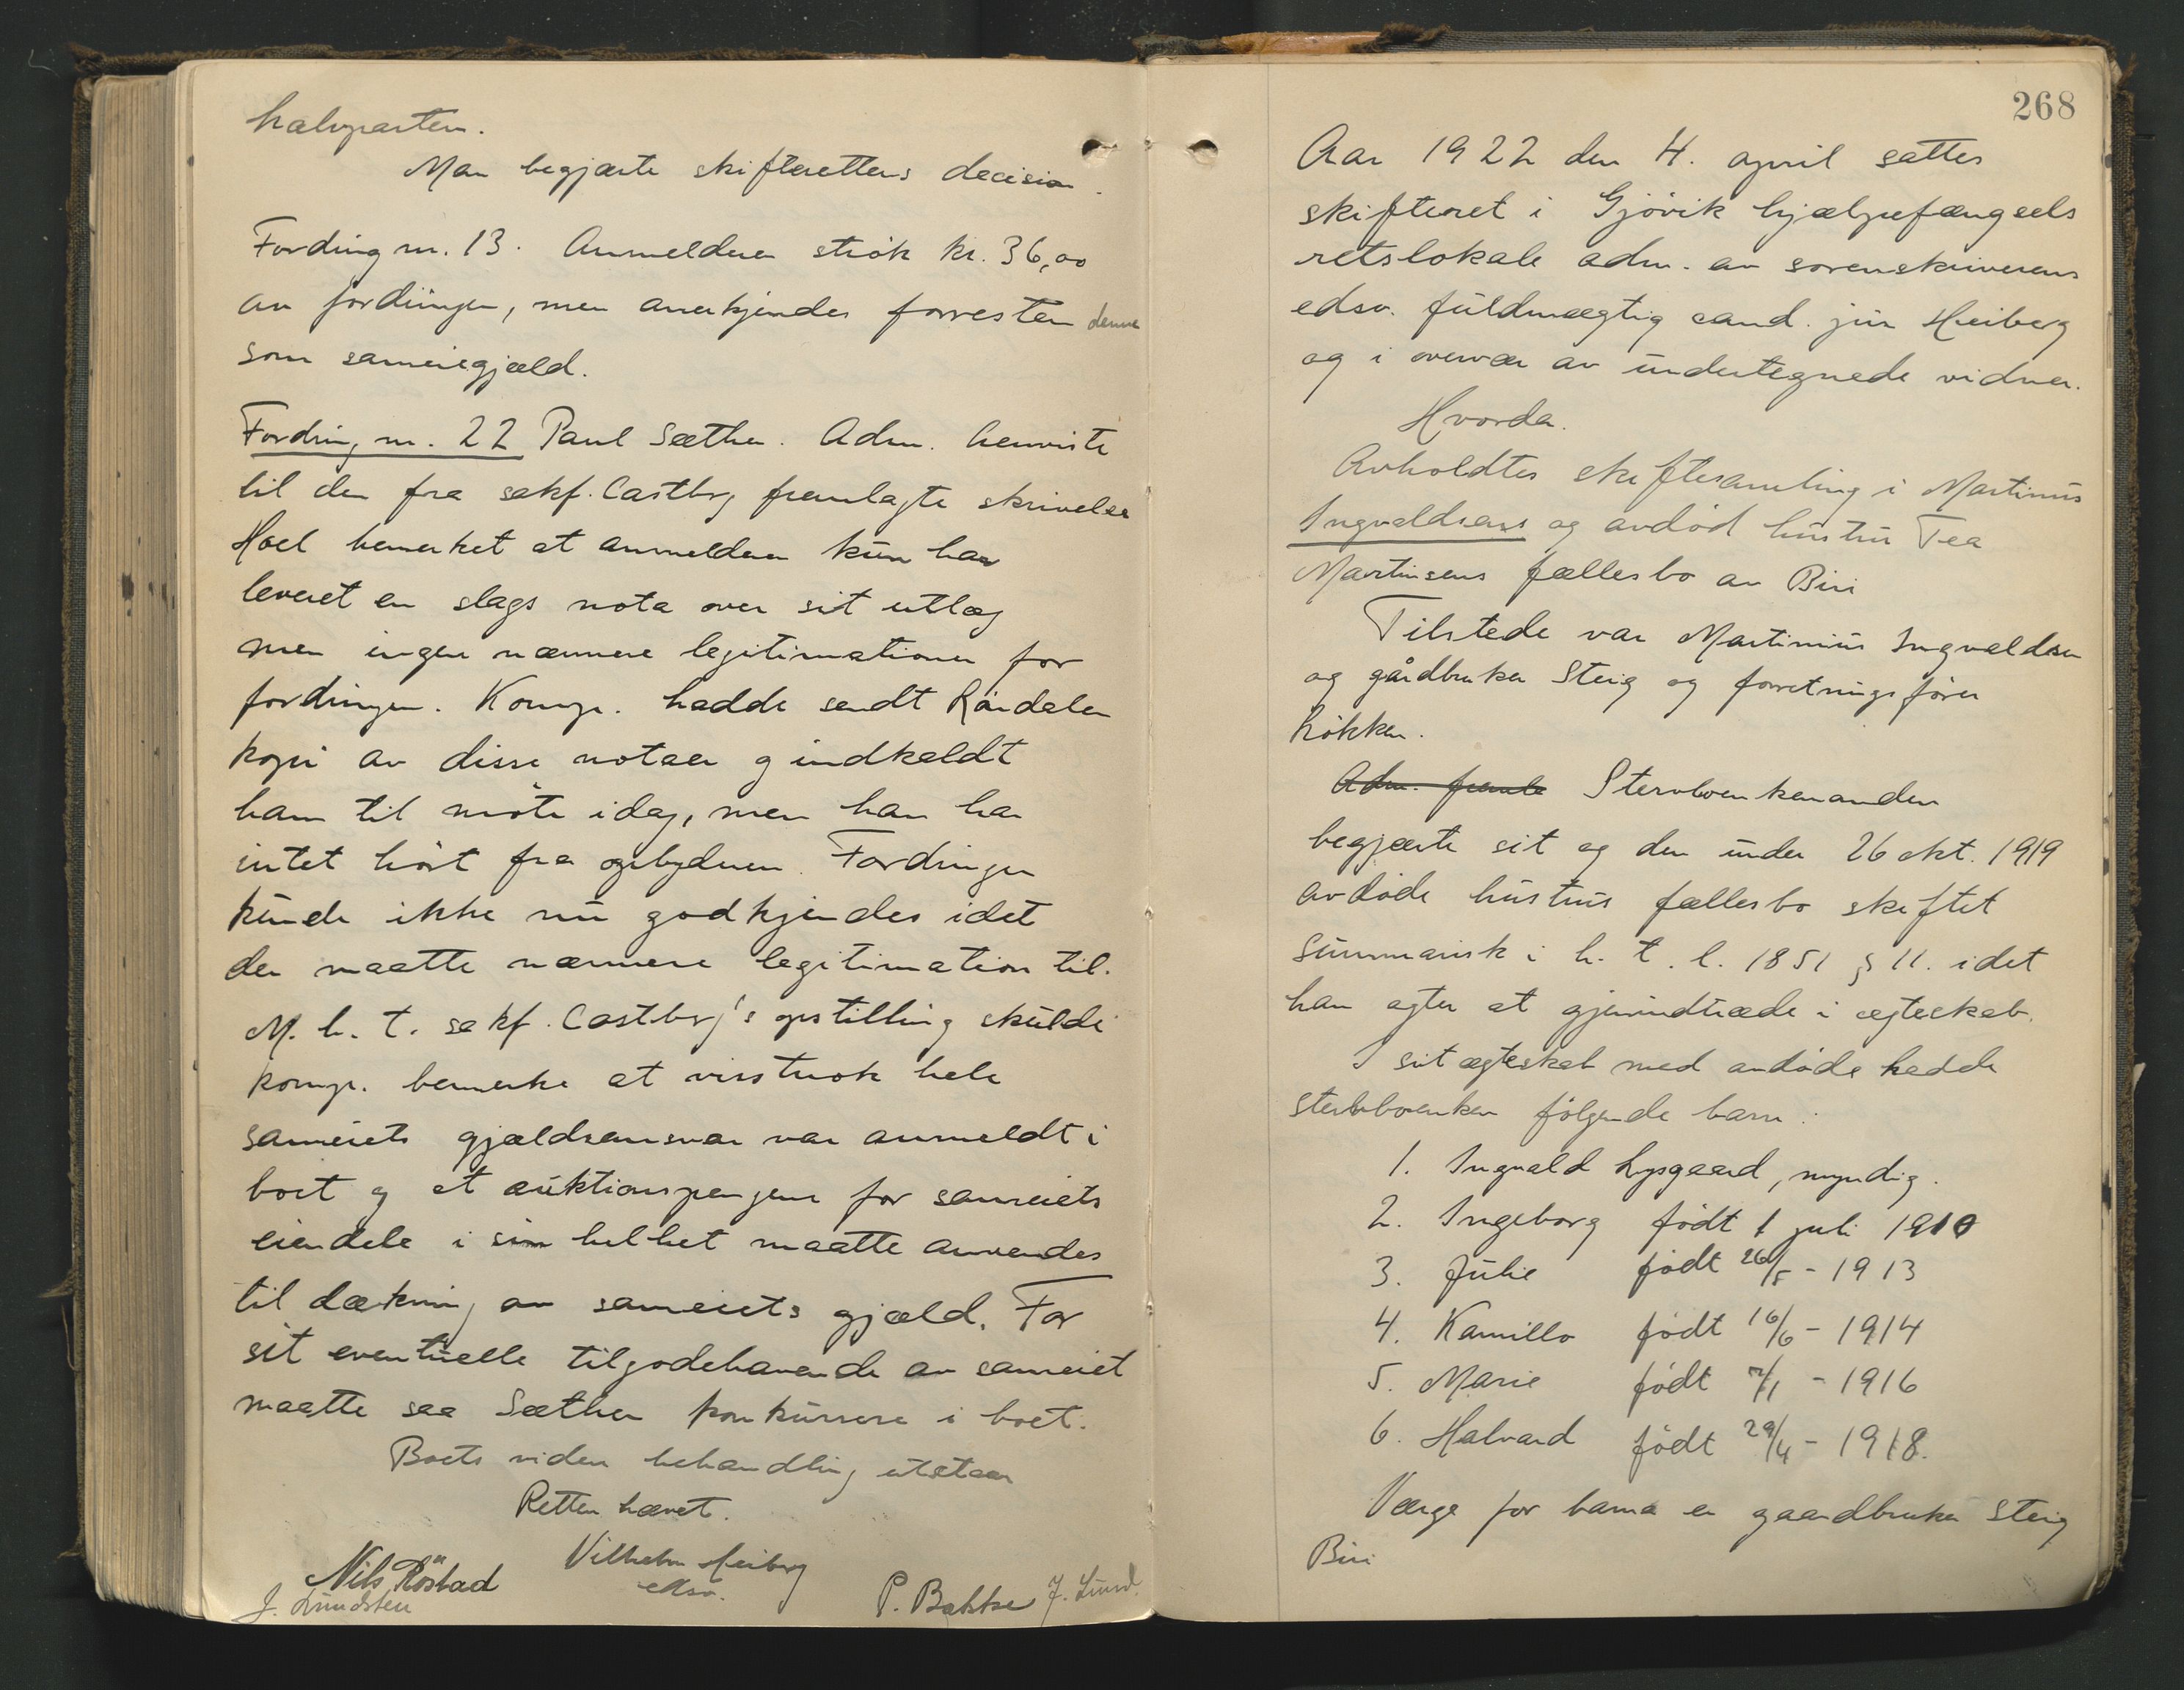 halvparten.
Man begjærte skifterettens decision.
Fordring nr. 13. Anmelderen strök kr. 36,00
av fordringen, men anerkjendes forresten denne
som sameiegjæld.
Fordring nr. 22 Paul Sæther. Adm. henviste
til den fra sakf. Castberg fremlagte skrivelse
Hoel bemerket at anmelderen kun har
leveret en slags nota over sit utlæg
men ingen nærmere legitimationer for
fordringen. Komp. hadde sendt Röndalen
kopi av disse notaer og indkaldt
ham til möte idag, men han har
intet hört fra opbyderen. Fordringen
kunde ikke nu godkjendes idet
der maatte nærmere legitimation til.
M. h. t. sakf. Castberg's opstilling skulde
komp. bemerke at visstnok hele
sameiets gjældsansvar var anmeldt i
boet og at auktionspengene for sameiets
eiendele i sin helhet maatte anvendes
til dækning av sameiets gjæld. For
sit eventuelle tilgodehavende av sameiet
maatte saa Sæther konkurrere i boet.
Boets videre behandling utstaar
Retten hævet.
Vilhelm Heiberg
Nils Röstad
edsv.
J. Lundsten
P. Bakke J. Lund.
268
Aar 1922 den 4. april sattes
skifteret i Gjövik hjælpefængsels
retslokale adm. av sorenskriverens
edsv. fuldmægtig cand. jur Heiberg
og i overvær av undertegnede vidner.
Hvorda.
Avholdtes skiftesamling i Martinus
Ingvaldsens og avdöd hustru Tea
Martinsens fællesbo av Biri
Tilstede var Martinius Ingvaldsen
og gårdbruker Steig og forretningsförer
Lökken.
Adm. fremla Stervboenkemanden
begjærte sit og den under 26 okt. 1919
avdöde hustrus fællesbo skiftet
summarisk i h. t. l. 1851 § 11. idet
han agter at gjenindtræde i ægteskab.
I sit ægteskab med avdöde hadde
stervboenkem fölgende barn:
1. Ingvald Lysgaard, myndig.
2. Ingeborg födt 1 juli 1910
3. Julie födt 26/5 - 1913
4. Kamillo födt 16/6 - 1914
5. Marie födt 7/1 - 1916
6. Halvard födt 29/4 - 1918.
Værge for barna er gaardbruker Steig
Biri